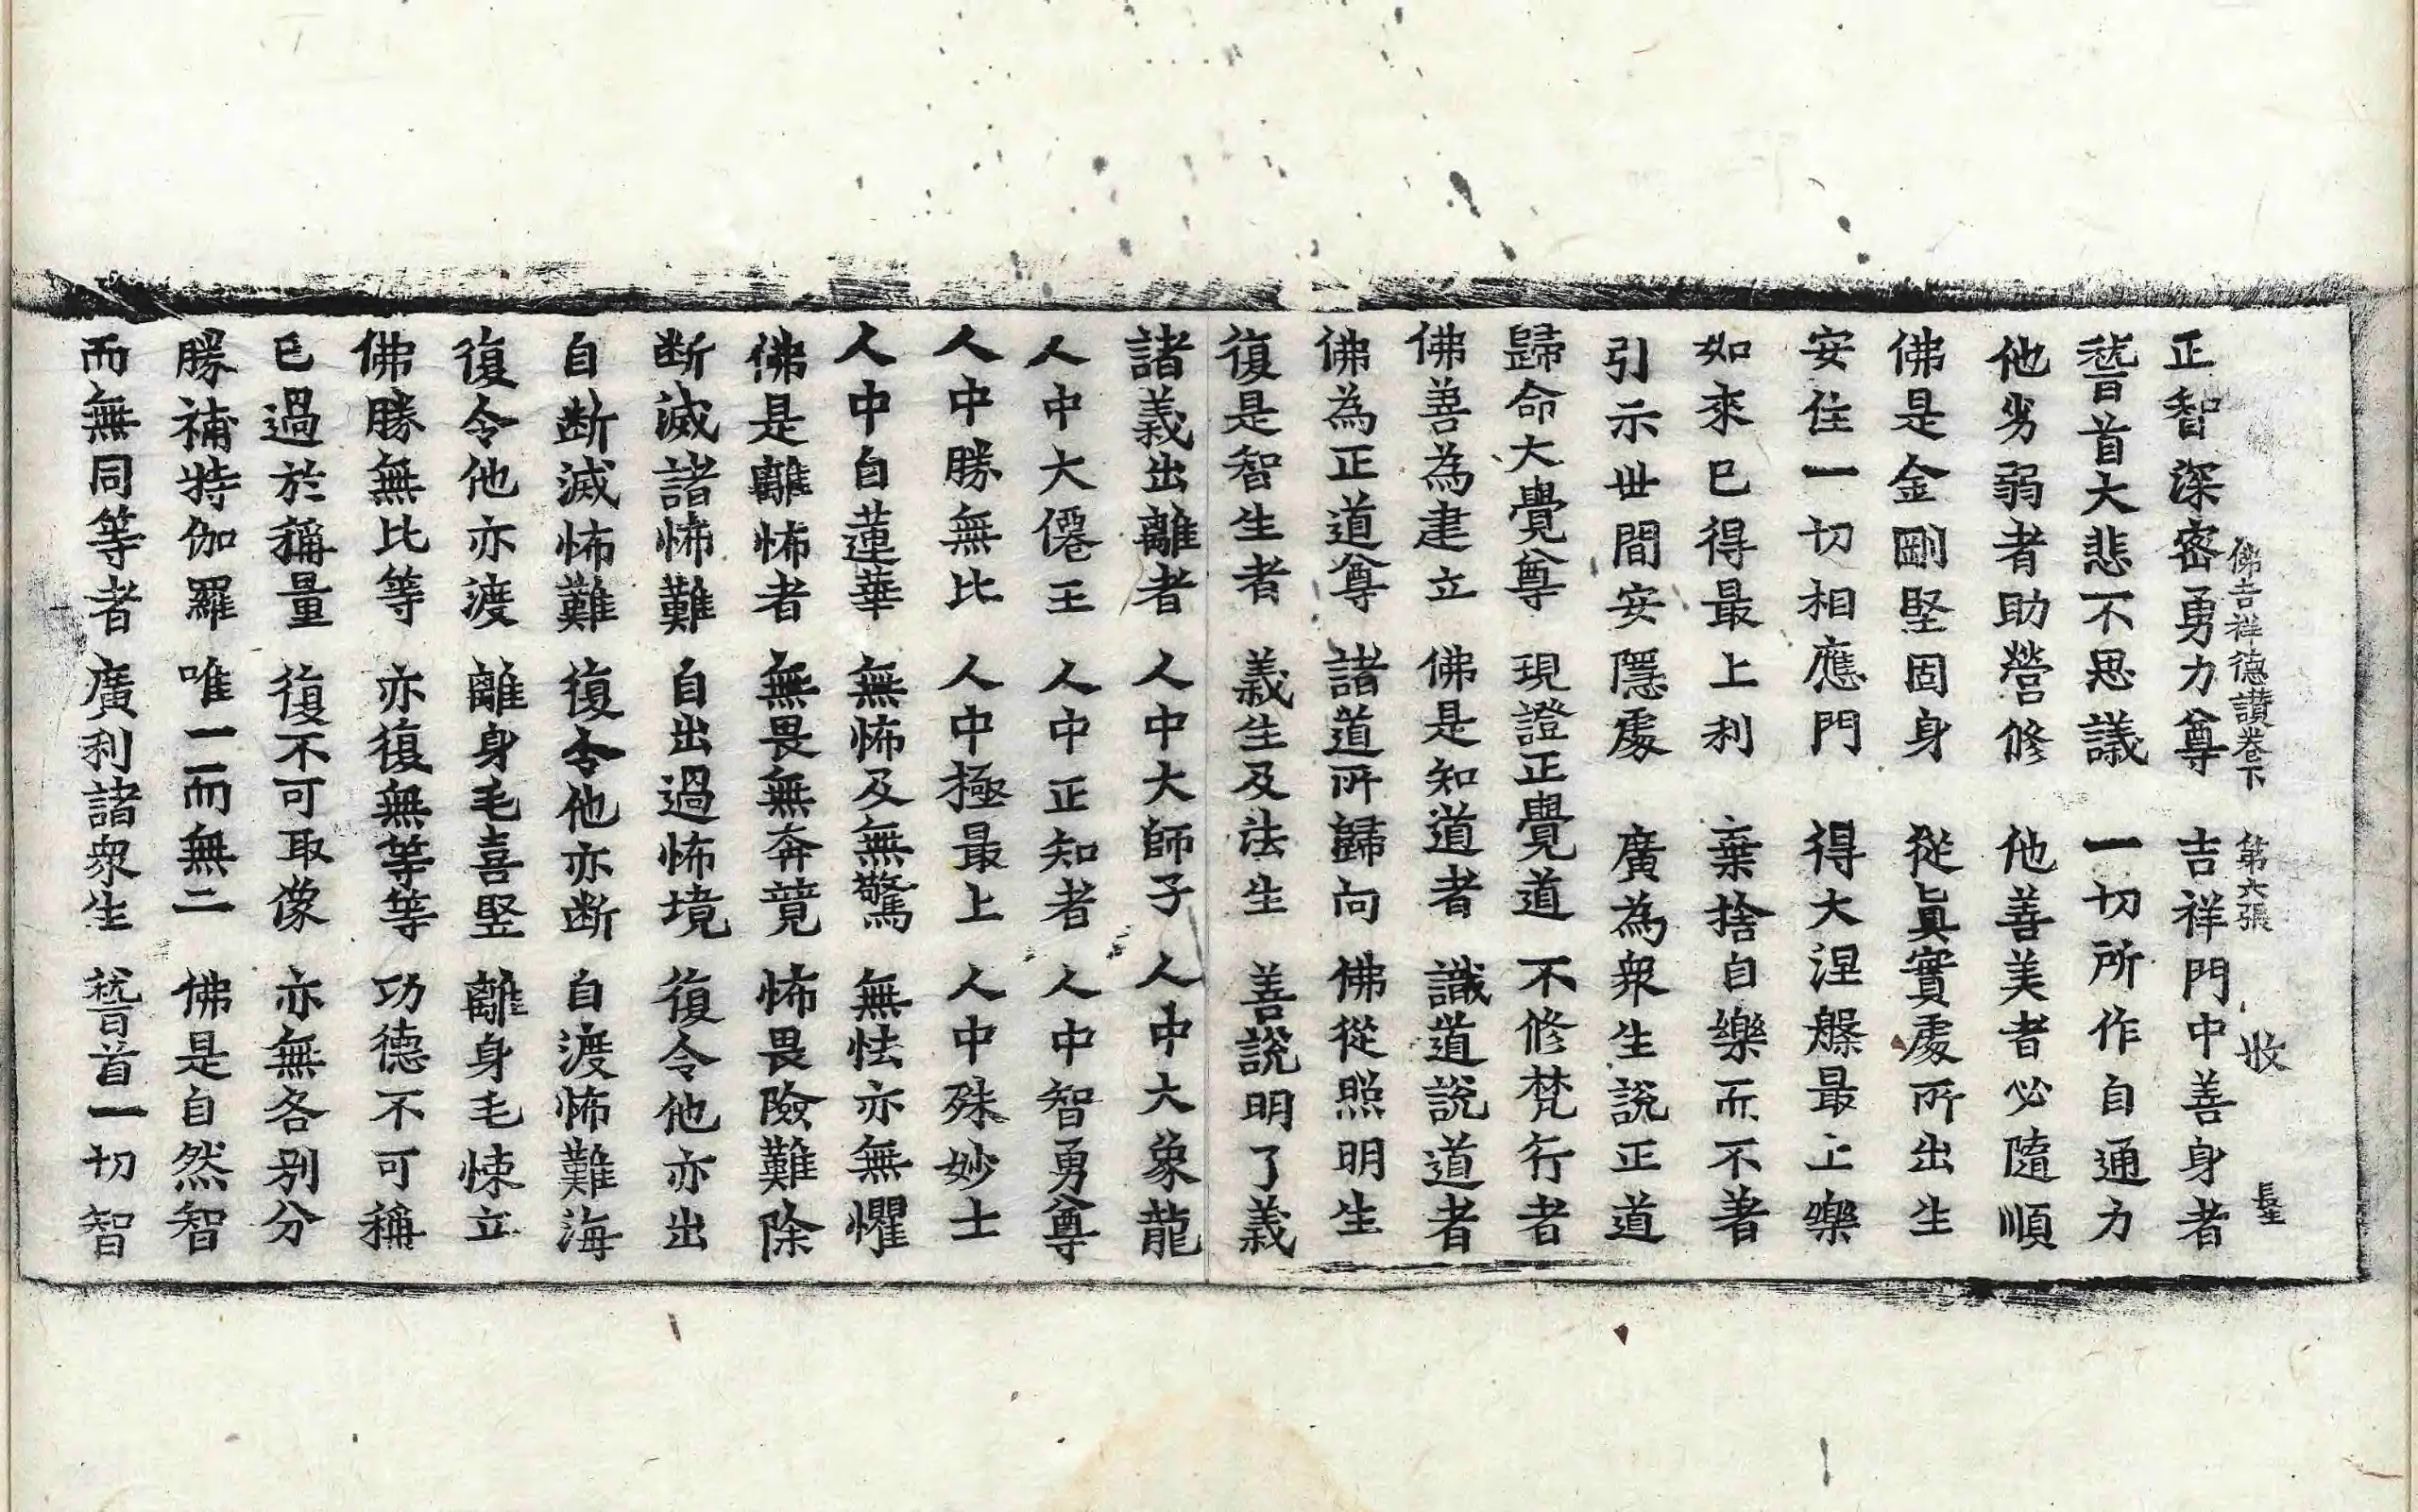 佛吉祥德讃卷下 第六張 收 長生
正智深密勇力尊 吉祥門中善身者
稽首大悲不思議 一切所作自通力
他劣弱者助營修 他善美者必隨順
佛是金剛堅固身 從眞實處所出生
安住一切相應門 得大涅槃最上樂
如來已得最上利 棄捨自樂而不著
引示世間安隱處 廣為衆生說正道
歸命大覺尊 現證正覺道 不修梵行者
佛善為建立 佛是知道者 識道說道者
佛為正道尊 諸道所歸向 佛從照明生
復是智生者 義生及法生 善說明了義
諸義出離者 人中大師子 人中大象龍
人中大僊王 人中正知者 人中智勇尊
人中勝無比 人中極最上 人中殊妙士
人中自蓮華 無怖及無驚 無怯亦無懼
佛是離怖者 無畏無奔競 怖畏險難除
断滅諸怖難 自出過怖境 復令他亦出
自断滅怖難 復令他亦断 自渡怖難海
復令他亦渡 離身毛喜竪 離身毛悚立
佛勝無比等 亦復無等等 功德不可稱
已過於稱量 復不可取像 亦無各別分
勝補特伽羅 唯一而無二 佛是自然智
而無同等者 廣利諸衆生 稽首一切智